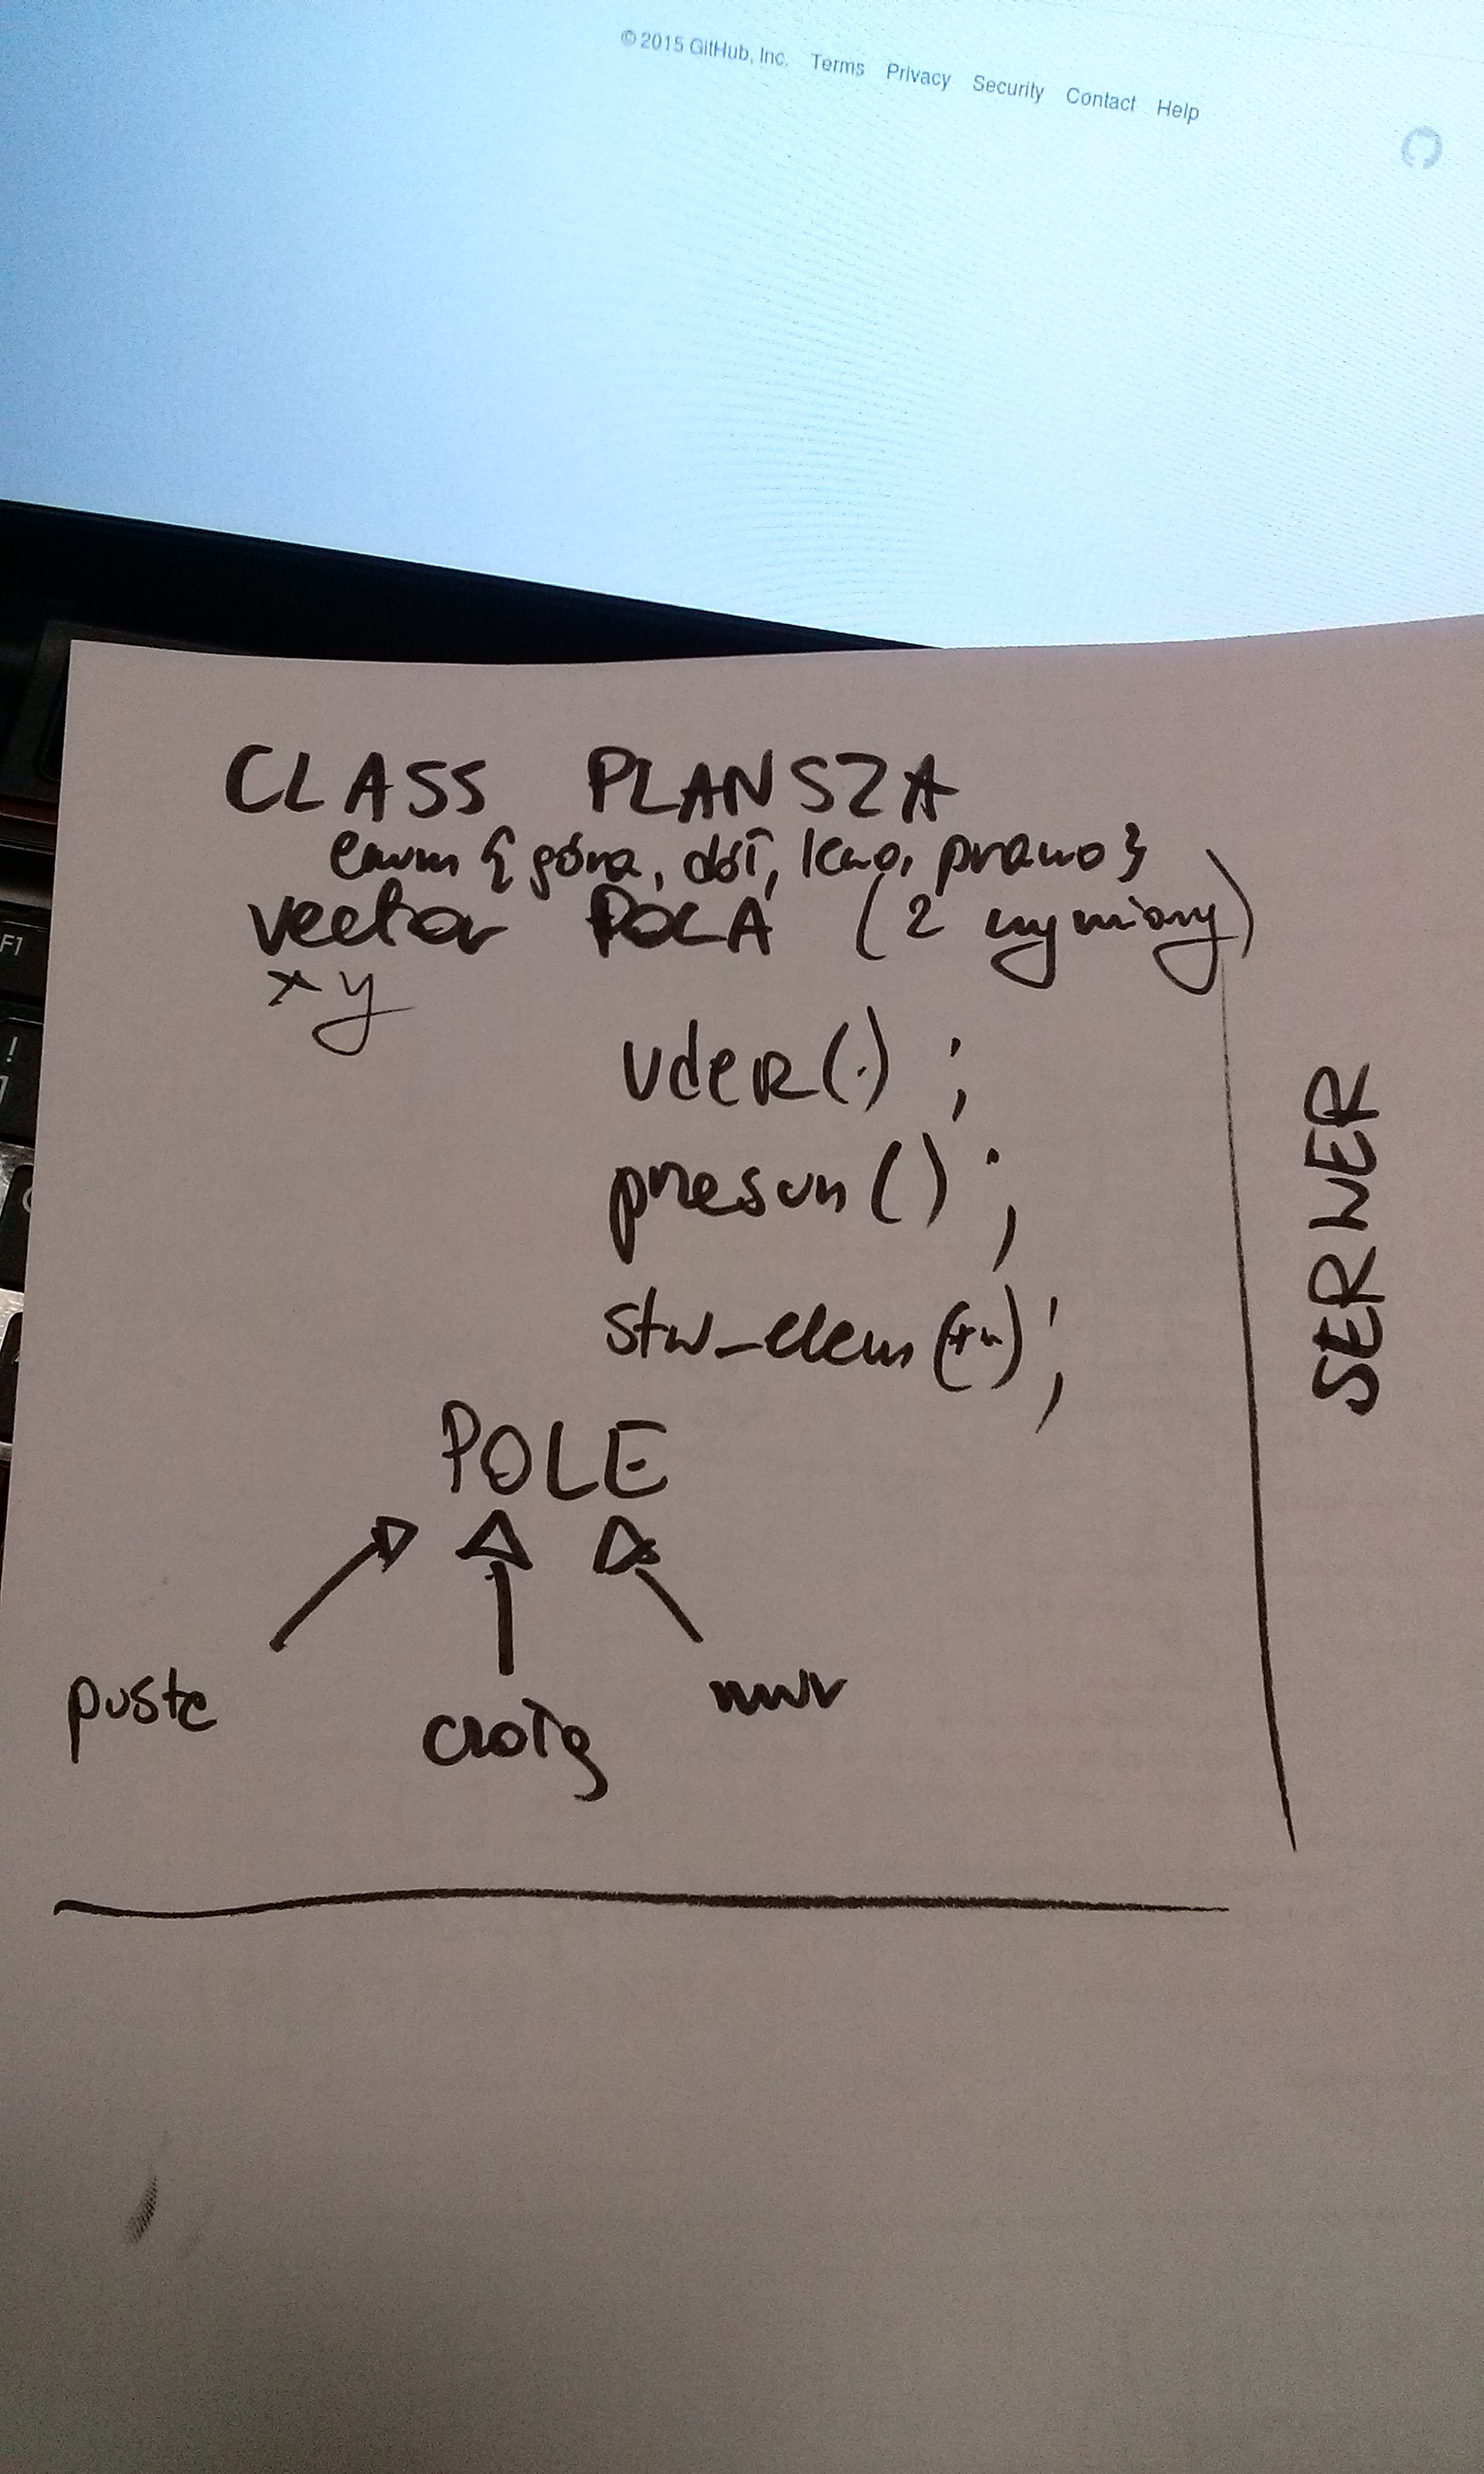 © 2015 GitHub, Inc. Terms Privacy Security Contact Help
CLASS PLANSZA
enum { góra, dół, lewo, prawo }
vector POLA (2 wymiary)
x y
uderz(.) ;
przesun() ;
stw_elem( ) ;
SERWER
POLE
puste
czołg
mur
F1
!